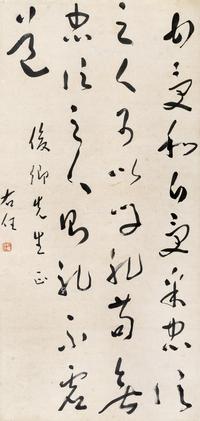 甘受和白受采忠信
之人可以學禮苟無
忠信之人則禮不虛
道
俊卿先生正
右任